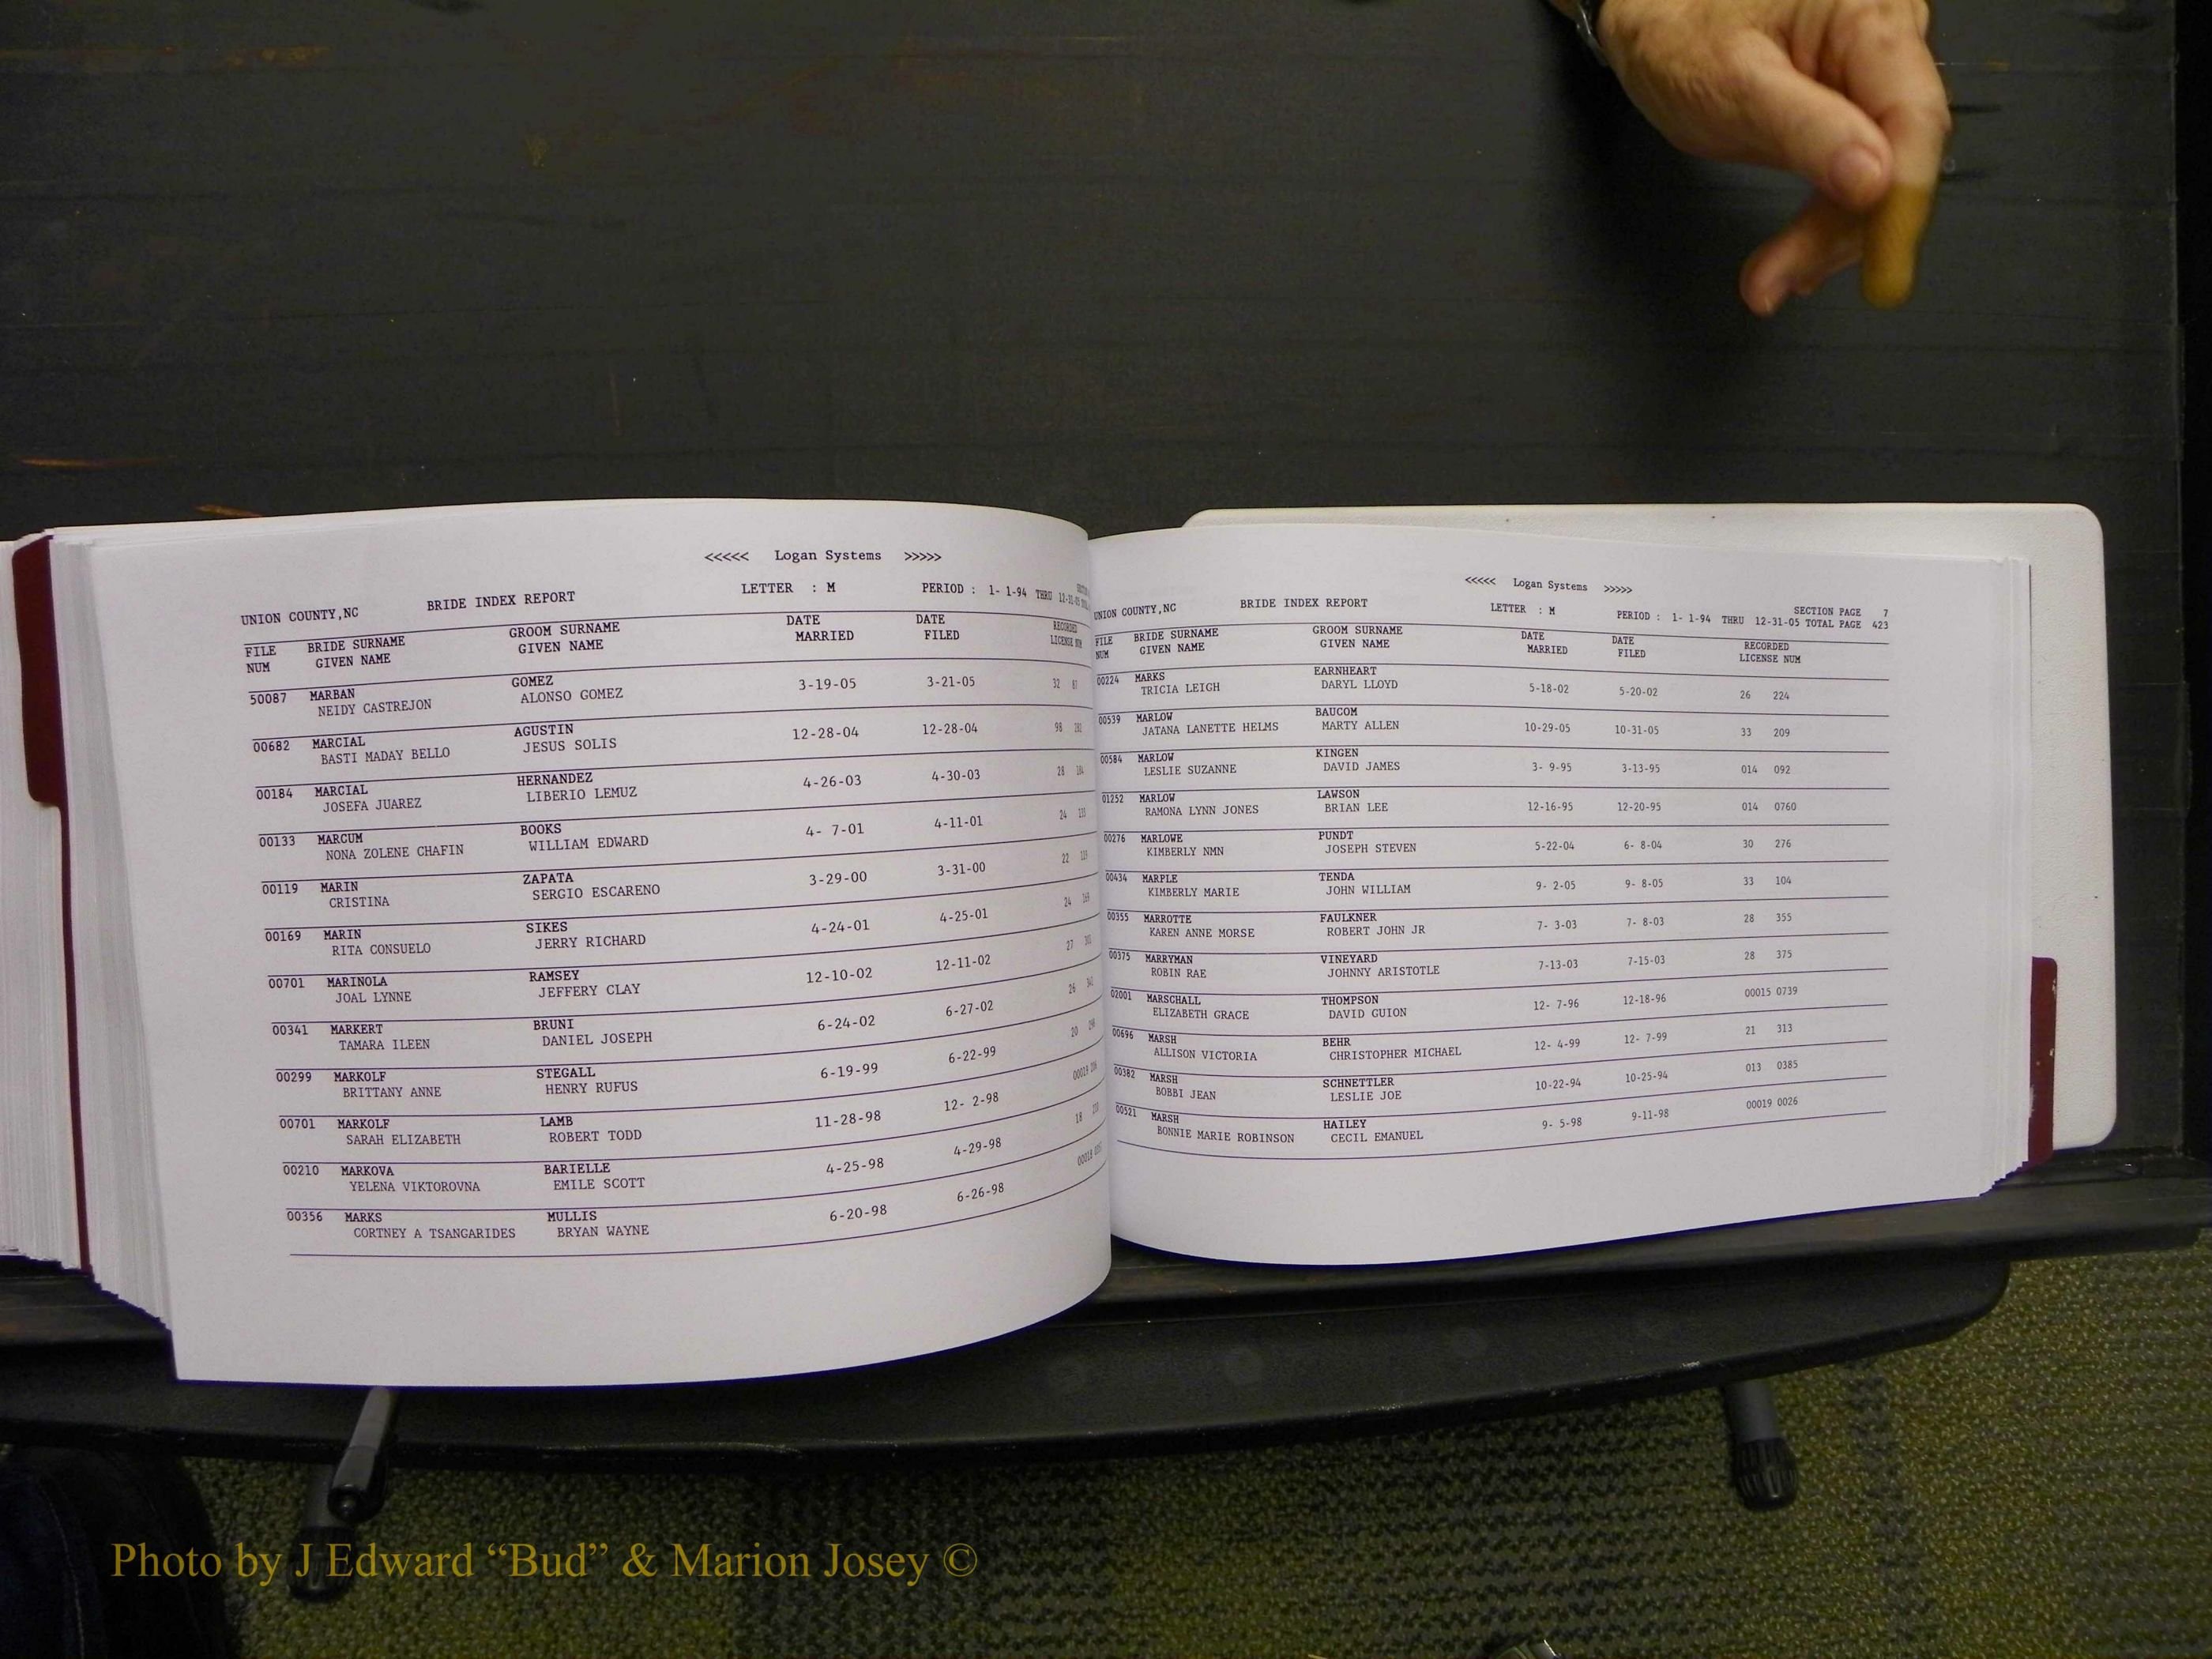 <<<<< Logan Systems >>>>>
UNION COUNTY,NC BRIDE INDEX REPORT LETTER : M PERIOD : 1- 1-94 THRU
FILE BRIDE SURNAME GROOM SURNAME DATE DATE RECORDED
NUM GIVEN NAME GIVEN NAME MARRIED FILED LICENSE NUM
50087 MARBAN GOMEZ 3-19-05 3-21-05 32
NEIDY CASTREJON ALONSO GOMEZ
00682 MARCIAL AGUSTIN 12-28-04 12-28-04 98
BASTI MADAY BELLO JESUS SOLIS
00184 MARCIAL HERNANDEZ 4-26-03 4-30-03 28
JOSEFA JUAREZ LIBERIO LEMUZ
00133 MARCUM BOOKS 4- 7-01 4-11-01 24
NONA ZOLENE CHAFIN WILLIAM EDWARD
00119 MARIN ZAPATA 3-29-00 3-31-00 22
CRISTINA SERGIO ESCARENO
00169 MARIN SIKES 4-24-01 4-25-01 24
RITA CONSUELO JERRY RICHARD
00701 MARINOLA RAMSEY 12-10-02 12-11-02 27
JOAL LYNNE JEFFERY CLAY
00341 MARKERT BRUNI 6-24-02 6-27-02 26
TAMARA ILEEN DANIEL JOSEPH
00299 MARKOLF STEGALL 6-19-99 6-22-99 20
BRITTANY ANNE HENRY RUFUS
00701 MARKOLF LAMB 11-28-98 12- 2-98 00019
SARAH ELIZABETH ROBERT TODD
00210 MARKOVA BARIELLE 4-25-98 4-29-98 18
YELENA VIKTOROVNA EMILE SCOTT
00356 MARKS MULLIS 6-20-98 6-26-98 00018
CORTNEY A TSANGARIDES BRYAN WAYNE
<<<<< Logan Systems >>>>>
SECTION PAGE 7
UNION COUNTY,NC BRIDE INDEX REPORT LETTER : M PERIOD : 1- 1-94 THRU 12-31-05 TOTAL PAGE 423
FILE BRIDE SURNAME GROOM SURNAME DATE DATE RECORDED
NUM GIVEN NAME GIVEN NAME MARRIED FILED LICENSE NUM
00224 MARKS EARNHEART 5-18-02 5-20-02 26 224
TRICIA LEIGH DARYL LLOYD
00539 MARLOW BAUCOM 10-29-05 10-31-05 33 209
JATANA LANETTE HELMS MARTY ALLEN
00584 MARLOW KINGEN 3- 9-95 3-13-95 014 092
LESLIE SUZANNE DAVID JAMES
01252 MARLOW LAWSON 12-16-95 12-20-95 014 0760
RAMONA LYNN JONES BRIAN LEE
00276 MARLOWE PUNDT 5-22-04 6- 8-04 30 276
KIMBERLY NMN JOSEPH STEVEN
00434 MARPLE TENDA 9- 2-05 9- 8-05 33 104
KIMBERLY MARIE JOHN WILLIAM
00355 MARROTTE FAULKNER 7- 3-03 7- 8-03 28 355
KAREN ANNE MORSE ROBERT JOHN JR
00375 MARRYMAN VINEYARD 7-13-03 7-15-03 28 375
ROBIN RAE JOHNNY ARISTOTLE
02001 MARSCHALL THOMPSON 12- 7-96 12-18-96 00015 0739
ELIZABETH GRACE DAVID GUION
00696 MARSH BEHR 12- 4-99 12- 7-99 21 313
ALLISON VICTORIA CHRISTOPHER MICHAEL
00382 MARSH SCHNETTLER 10-22-94 10-25-94 013 0385
BOBBI JEAN LESLIE JOE
00521 MARSH HAILEY 9- 5-98 9-11-98 00019 0026
BONNIE MARIE ROBINSON CECIL EMANUEL
Photo by J Edward “Bud” & Marion Josey ©